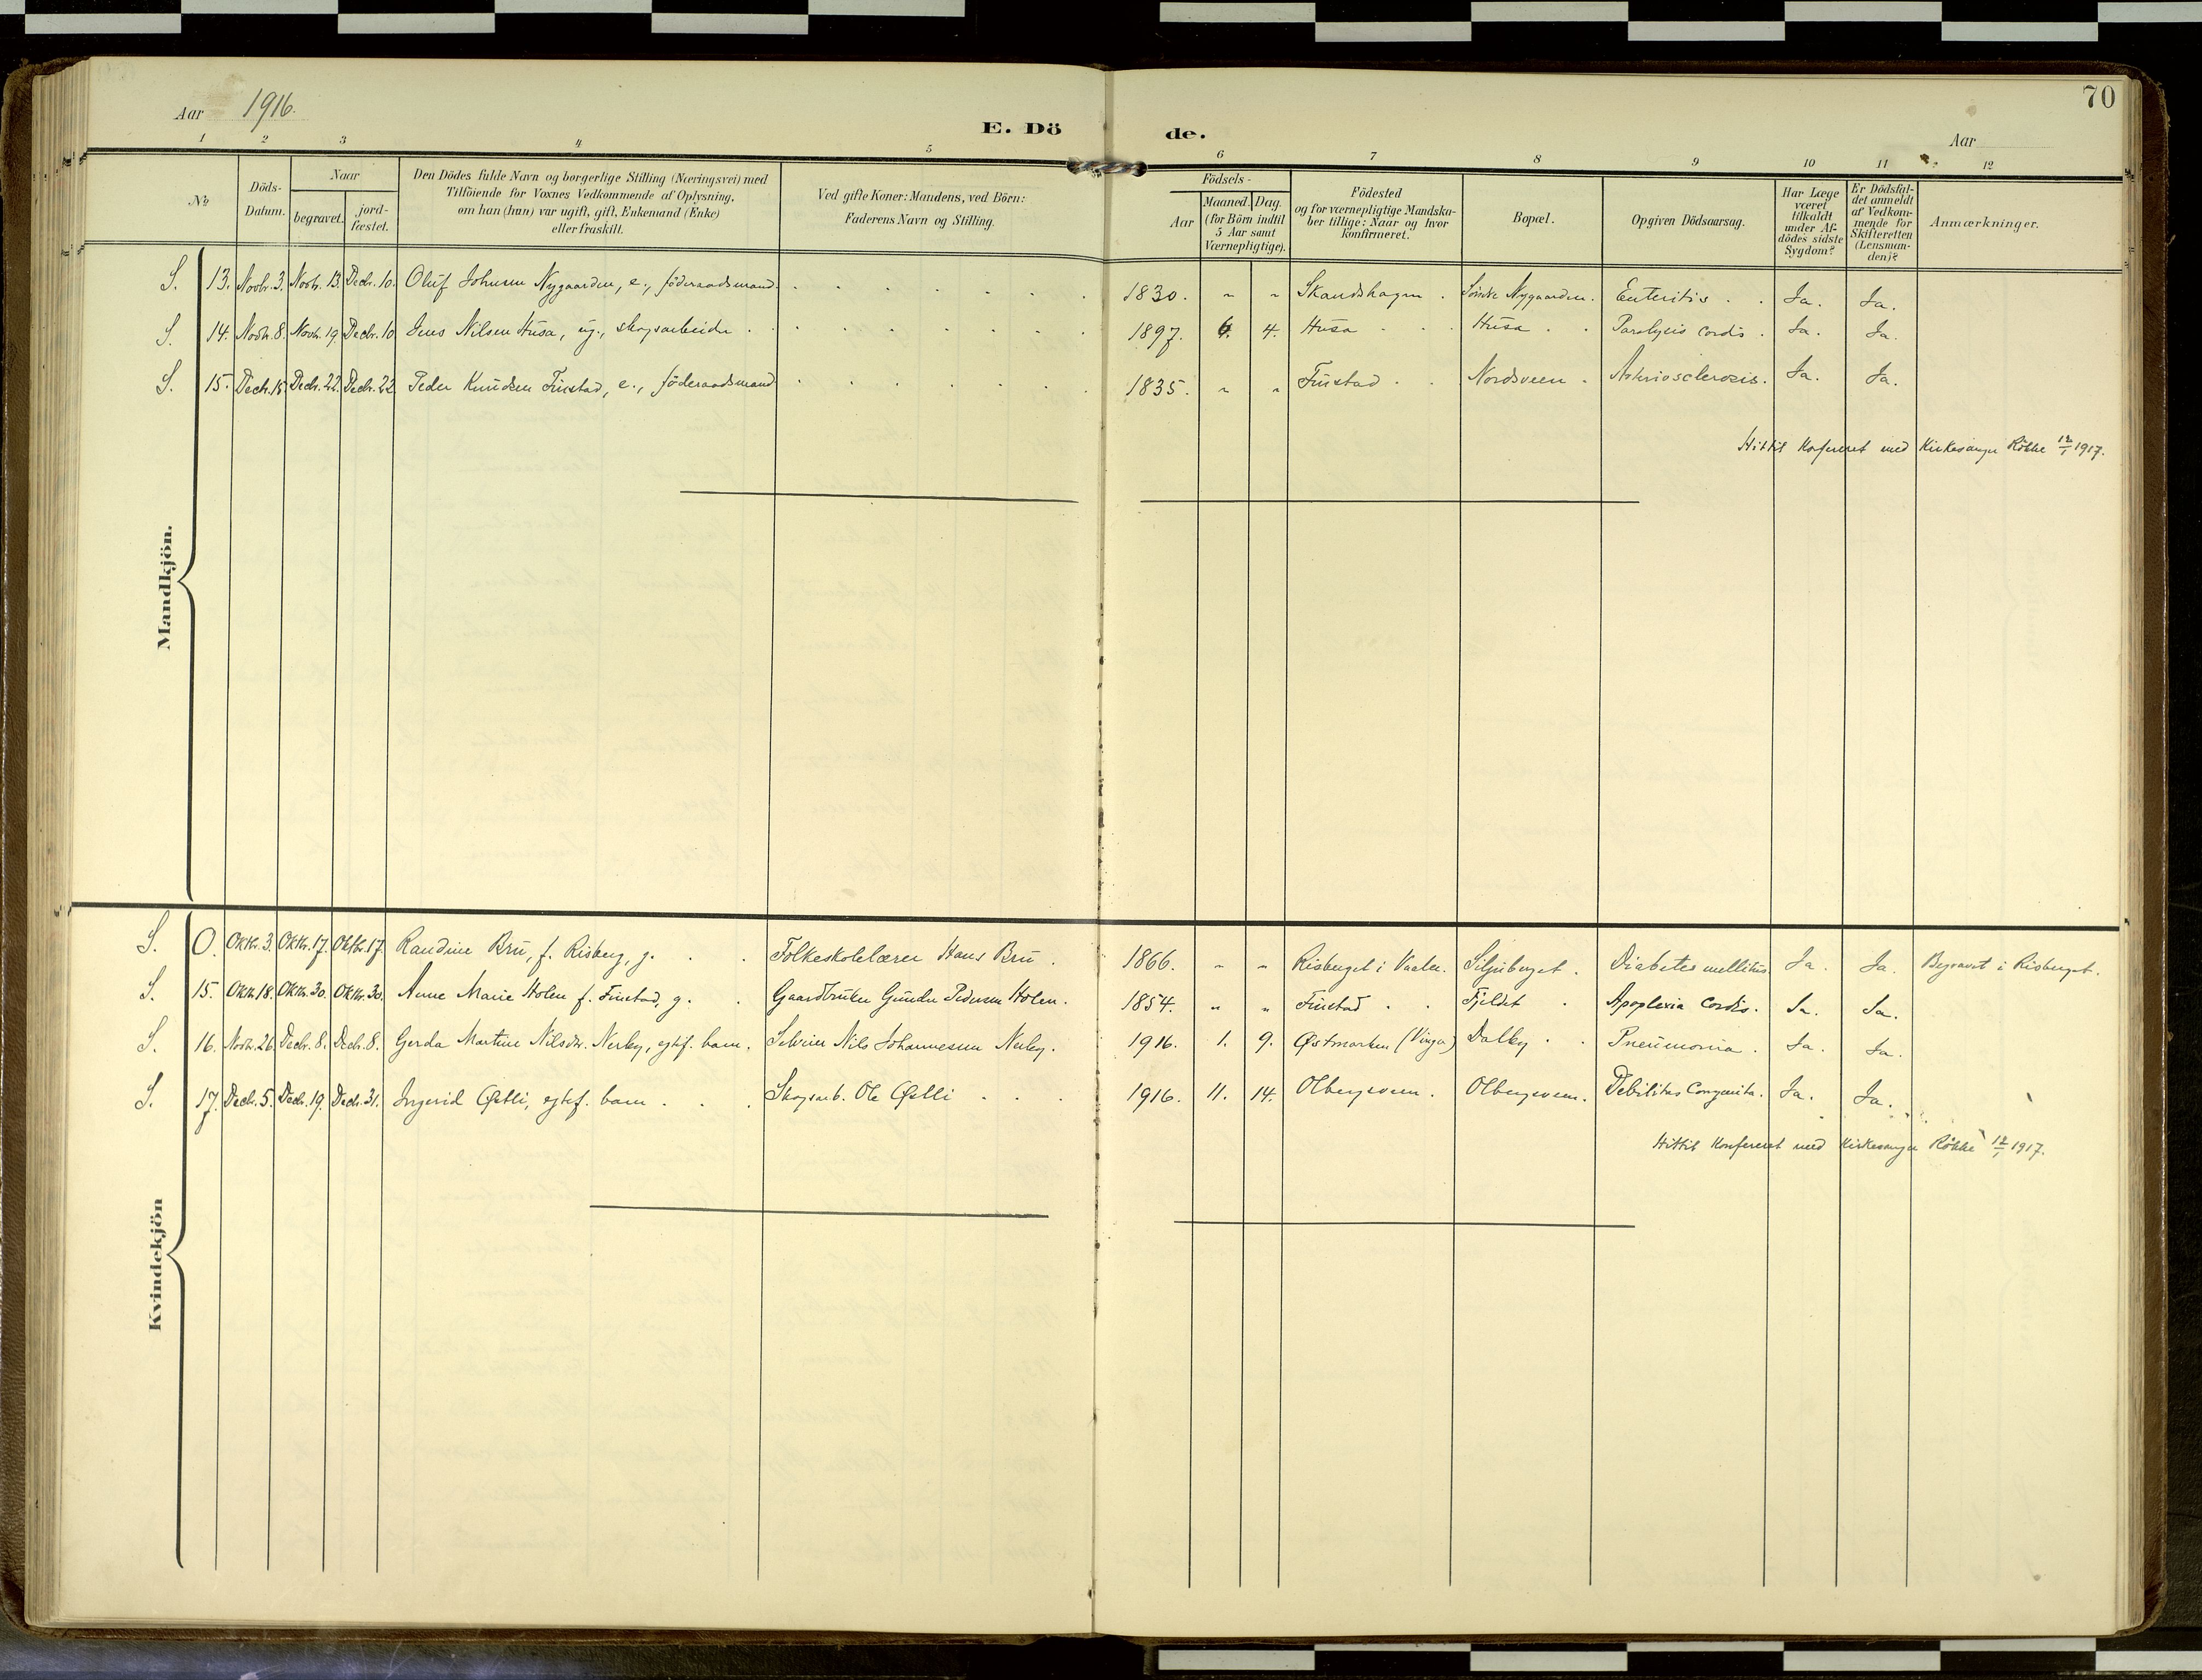 70
Aar 1916.
E. Dö de.
Aar
1 2 3 4 5 6 7 8 9 10 11 12
No.
Döds-Datum.
Naar
begravet.
jord-fæstet.
Den Dödes fulde Navn og borgerlige Stilling (Næringsvei) med
Tilföiende for Voxnes Vedkommende af Oplysning,
om han (hun) var ugift, gift, Enkemand (Enke)
eller fraskilt.
Ved gifte Koner: Mandens, ved Börn:
Faderens Navn og Stilling.
Födsels-
Aar
Maaned. Dag.
(for Börn indtil
5 Aar samt
Værnepligtige).
Födested
og for værnepligtige Mandska-
ber tillige: Naar og hvor
konfirmeret.
Bopæl.
Opgiven Dödsaarsag.
Har Læge
været
tilkaldt
under Af-
dödes sidste
Sygdom?
Er Dödsfal-
det anmeldt
af Vedkom-
mende for
Skifteretten
(Lensman-
den)?
Anmærkninger.
Mandkjön.
S. 13. Novbr. 3. Novbr. 13. Decbr. 10. Oluf Johnsen Nygaarden, e., föderaadsmand. 1830. " " Skandshagen. Söndre Nygaarden. Enteritis. Ja. Ja.
S. 14. Novbr. 8. Novbr. 19. Decbr. 10. Jens Nilsen Husa, ug., skogsarbeider. 1897. 6. 4. Husa Husa Paralysis cordis. Ja. Ja.
S. 15. Decbr. 15. Decbr. 22. Decbr. 22. Peder Knudsen Finstad, e., föderaadsmand 1835. " " Finstad Nordsveen. Arteriosclerosis. Ja. Ja.
Hittil konfereret med Kirkesanger Rökke 12/1 1917.
Kvindekjön
S. 0. Oktbr. 3. Oktbr. 17. Oktbr. 17. Randine Bru, f. Risberg, g. Folkeskolelærer Hans Bru. 1866. " " Risberget i Vaaler. Siljuberget. Diabetes mellitus Ja. Ja. Begravet i Risberget.
S. 15. Oktbr. 18. Oktbr. 30. Oktbr. 30. Anne Marie Holen f. Finstad, g. Gaardbruker Gunder Pedersen Holen. 1854. " " Finstad Fjeldet Apoplexia cordis. Ja. Ja.
S. 16. Novbr. 26. Decbr. 8. Decbr. 8. Gerda Martine Nilsdr. Nerby, egtef. barn. Nils Johannesen Nerby. 1916. 1. 9. Østmarken (Vinger) Dalby Pneumonia. Ja. Ja.
S. 17. Decbr. 5. Decbr. 19. Decbr. 31. Ingerid Østli, egtef. barn. Skogsarb. Ole Østli 1916. 11. 14. Olbergsveen. Olbergsveen. Debilitas congenita. Ja. Ja.
Hittil konfereret med Kirkesanger Rökke 12/1 1917.